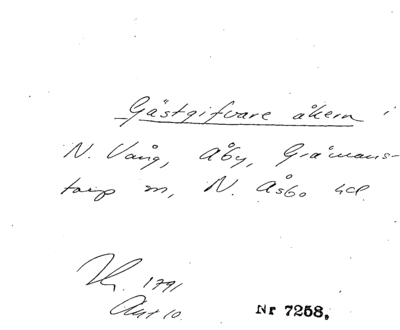 Gästgifvare åkern i
N. Vång, Åby, Gråmans-
torp m, N. Åsbo hd.
1791
Akt 10
Nr 7258,